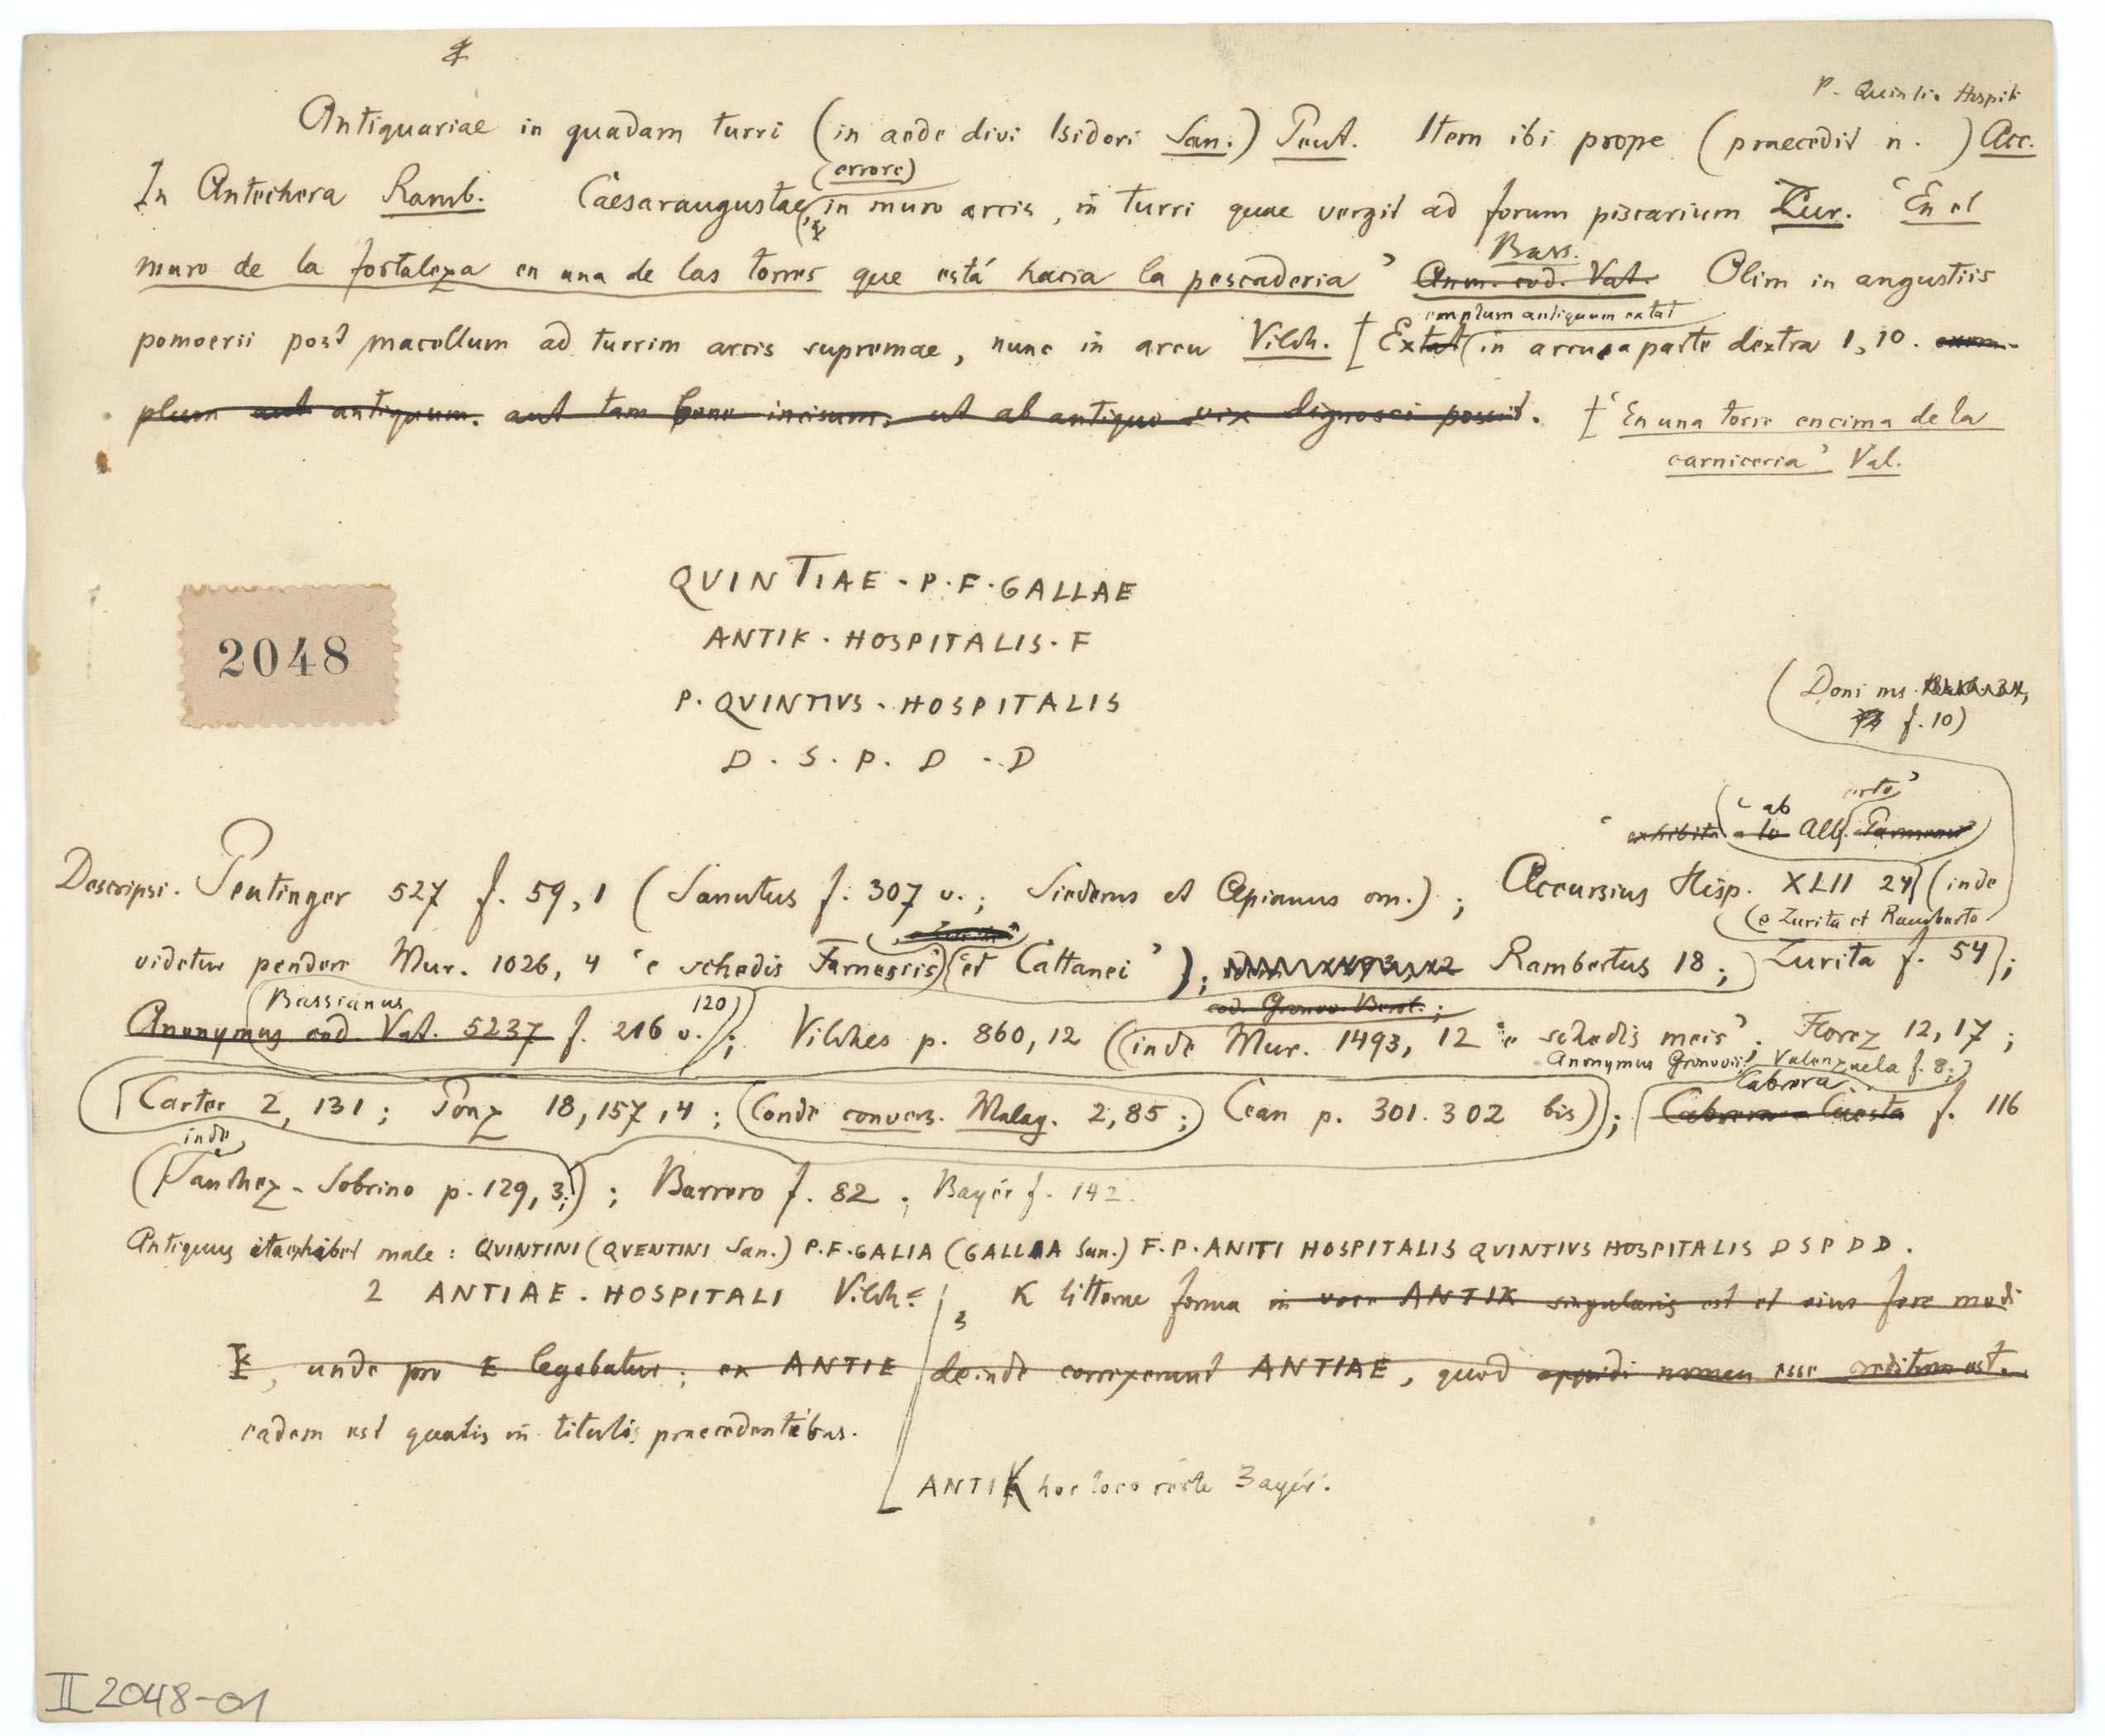 P. Quintio Hospit
Antiquariae in quadam turri (in aede divi Isidori San.) Peut. Item ibi prope (praecedit n. ) Acc.
(errore)
In Antechera Ramb. Caesaraugustae in muro arcis, in turri quae vergit ad forum piscarium Zur. 'En el
Bass.
muro de la fortaleza en una de las torres que está hacia la pescaderia' Anon. cod. Vat. Olim in angustiis
emplum antiquum extat
pomoerii post macellum ad turrim arcis supremae, nunc in arcu Vilch. [Extat in arcu a parte dextra 1, 10. exem-
plum aut antiquum. aut tam bene incisum, ut ab antiquo vix dignosci possit. † 'En una torre encima de la
carniceria' Val.
QVINTIAE · P · F · GALLAE
2048
ANTIK · HOSPITALIS · F
P. QVINTIVS · HOSPITALIS
D · S · P · D · D
(Doni ms.
f. 10)
ab
exhibita a Alf.
Descripsi. Peutinger 527 f. 59, 1 (Sanutus f. 307 v.; Siederus et Apianus om.); Accursius Hisp. XLII 24 (inde
(e Zurita et Ramberto
videtur pendere Mur. 1026, 4 'e schedis Farnesiis et Cattanei'); Rambertus 18; Zurita f. 54);
Bassianus 120)
cod. Gronov. Berol.;
Anonymus cod. Vat. 5237 f. 216 v.); Vilches p. 860, 12 (inde Mur. 1493, 12 'e schedis meis'; Florez 12, 17;
Anonymus Gronovii; Valenzuela f. 8;
Cabrera
Carter 2, 131; Ponz 18, 157, 4; (Conde convers. Malag. 2, 85; Cean p. 301. 302 bis); Cabrera Cuesta f. 116
inde
(Sanchez-Sobrino p. 129, 3;); Barrero f. 82; Bayér f. 142.
Antiquus ita exhibet male: QVINTINI (QVENTINI San.) P.F. GALIA (GALLA San.) F. P. ANITI HOSPITALIS QVINTIVS HOSPITALIS D S P D D.
2 ANTIAE · HOSPITALI Vilch.
K litterae forma in voce ANTIK singularis est et eius fere modi
K, unde pro E legebatur; ex ANTIE deinde correxerunt ANTIAE, quod oppidi nomen esse creditum est.
eadem est qualis in titulis praecedentibus.
ANTIK hoc loco recte Bayér.
II 2048-01